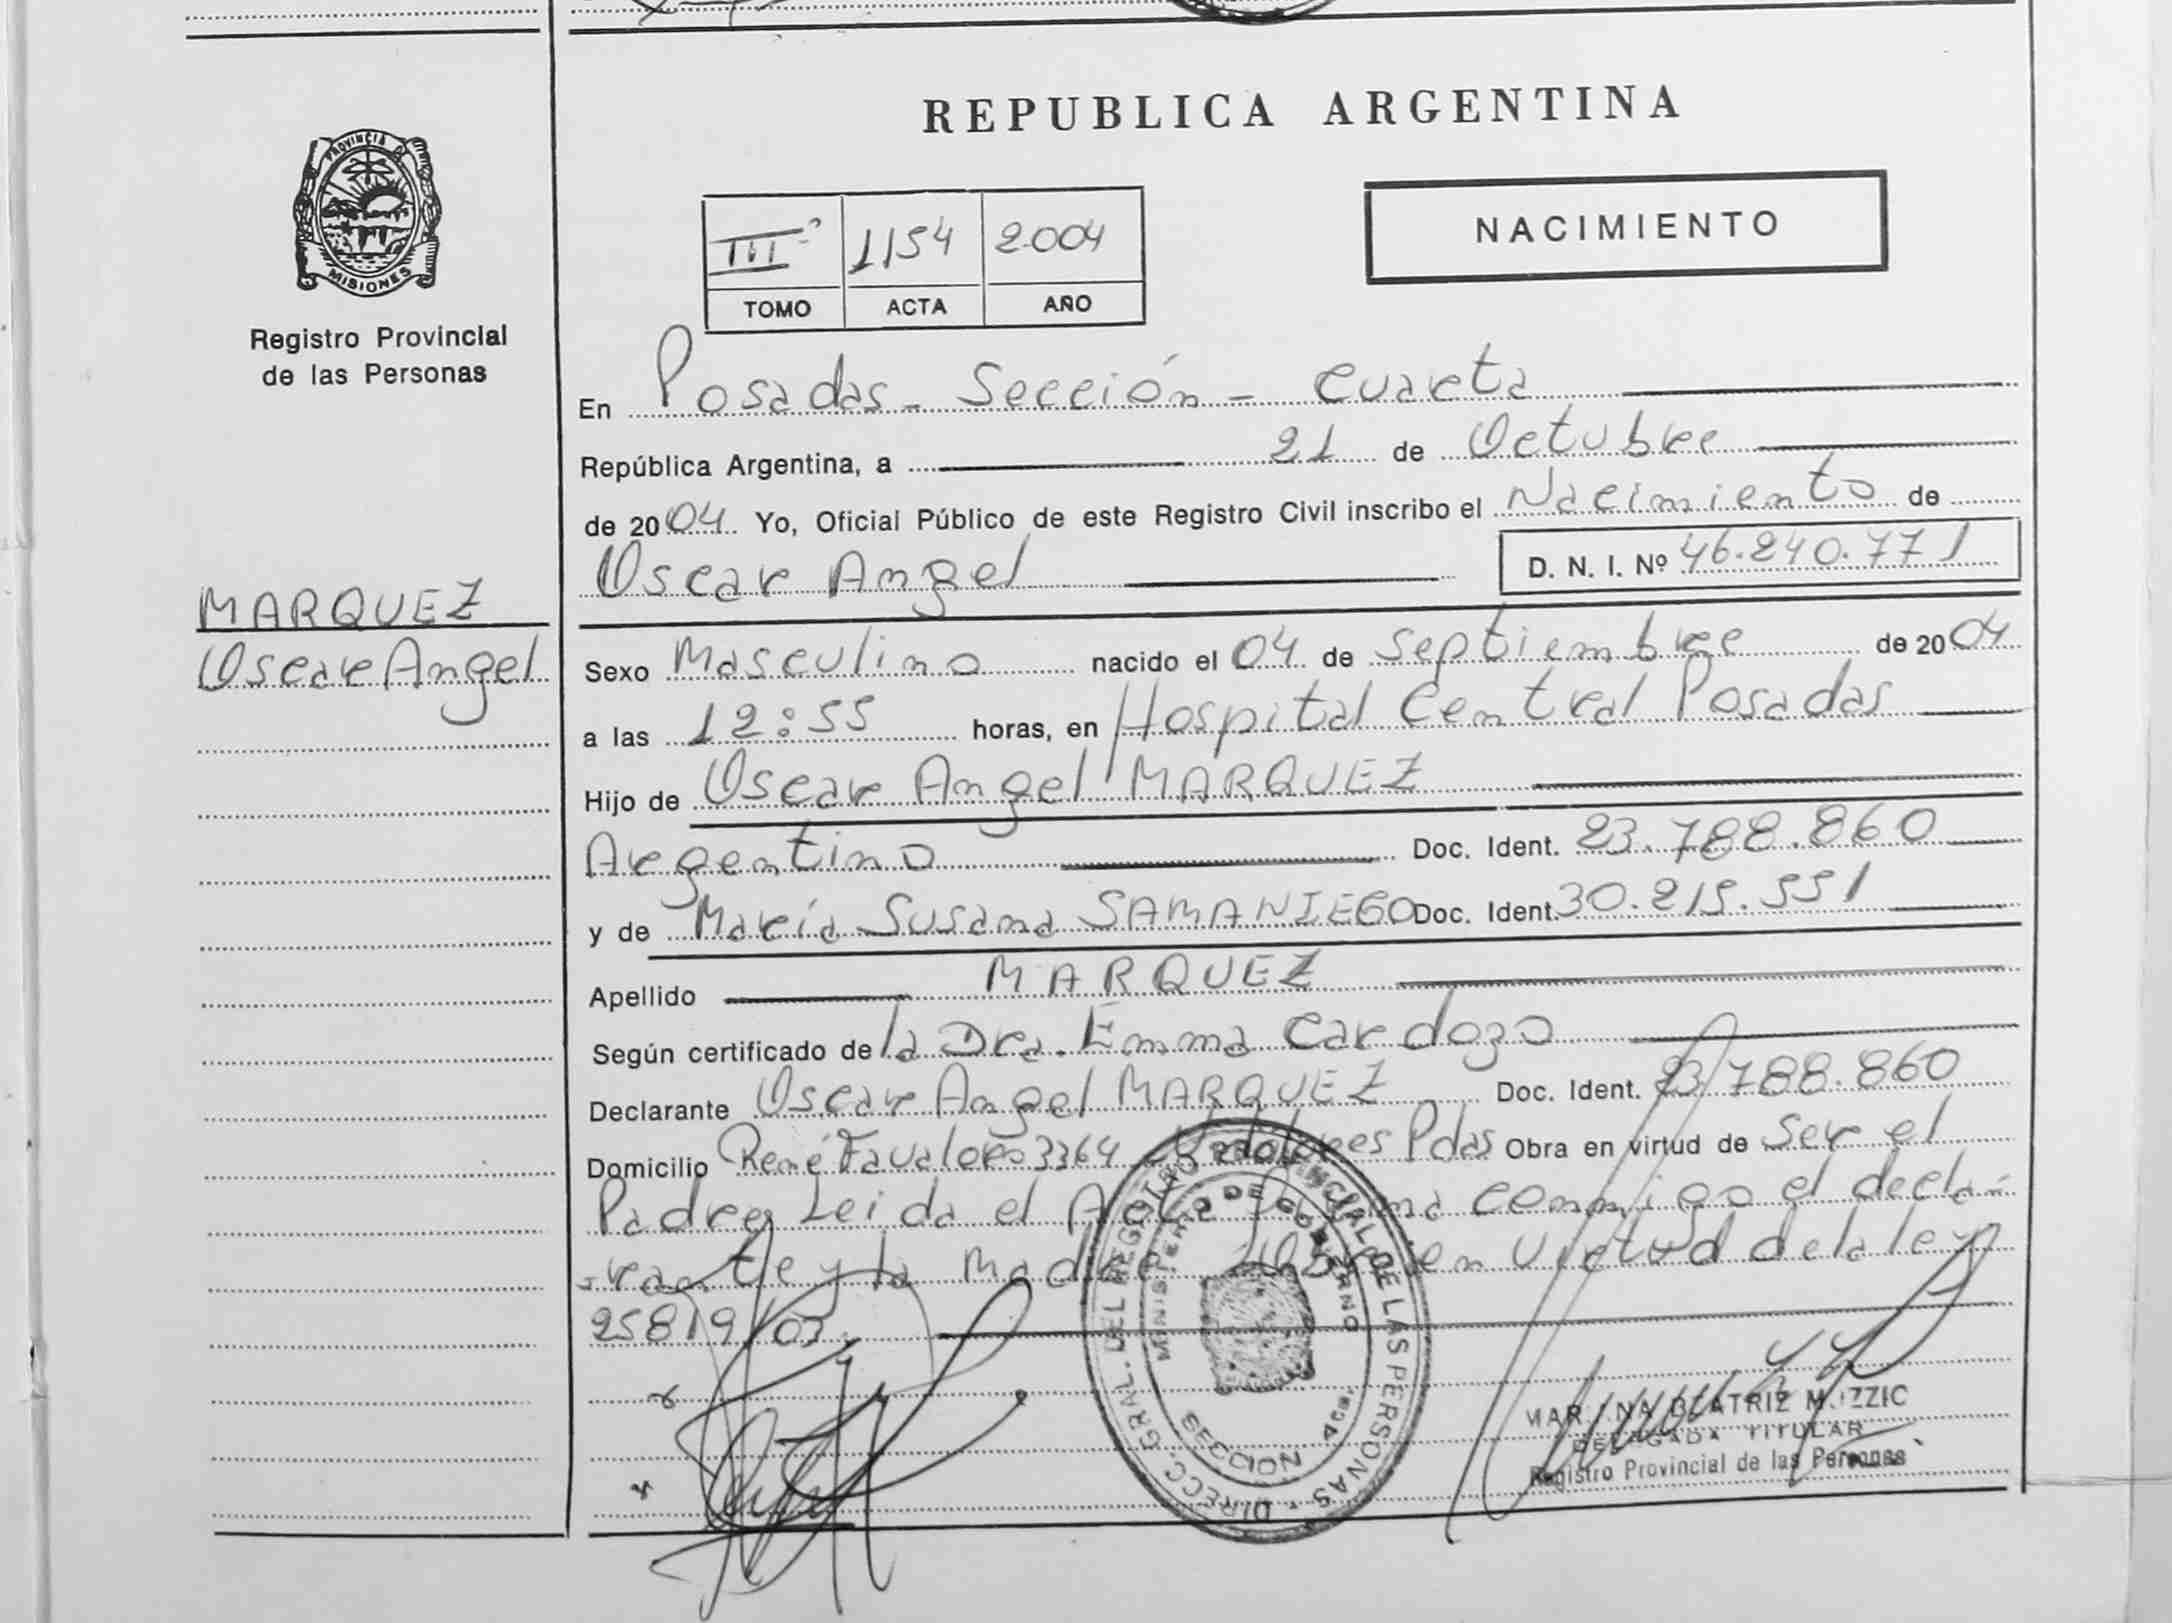 REPUBLICA ARGENTINA
PROVINCIA DE
MISIONES
Registro Provincial
de las Personas
NACIMIENTO
III 1154 2004
TOMO ACTA AÑO
En Posadas - Sección - Cuarta
República Argentina, a 21 de Octubre
de 2004. Yo, Oficial Público de este Registro Civil inscribo el Nacimiento de
Oscar Angel D. N. I. Nº 46.240.771
MARQUEZ
Oscar Angel
Sexo Masculino nacido el 04 de Septiembre de 2004
a las 12:55 horas, en Hospital Central Posadas
Hijo de Oscar Angel MARQUEZ
Argentino Doc. Ident. 23.788.860
y de María Susana SAMANIEGO Doc. Ident. 30.215.551
Apellido MARQUEZ
Según certificado de la Dra. Emma Cardozo
Declarante Oscar Angel MARQUEZ Doc. Ident. 23.788.860
Domicilio René Favaloro 3364 Pdas Obra en virtud de Ser el
Padre Leida el Acta conmigo el decla-
-rante y la Madre en virtud de la ley
25819/03.
DIRECC. GRAL. DEL REGISTRO PROVINCIAL DE LAS PERSONAS
MINISTERIO DE GOBIERNO
BEATRIZ
DELEGADA TITULAR
Registro Provincial de las Personas